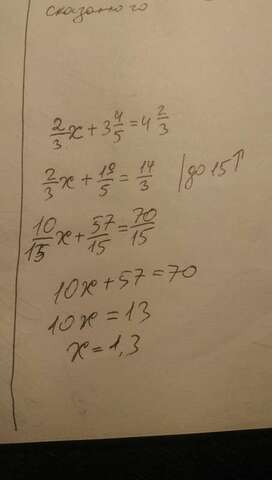 сказаного
2/3 x + 3 4/5 = 4 2/3
2/3 x + 19/5 = 14/3 | до 15↑
10/15 x + 57/15 = 70/15
10x + 57 = 70
10x = 13
x = 1,3